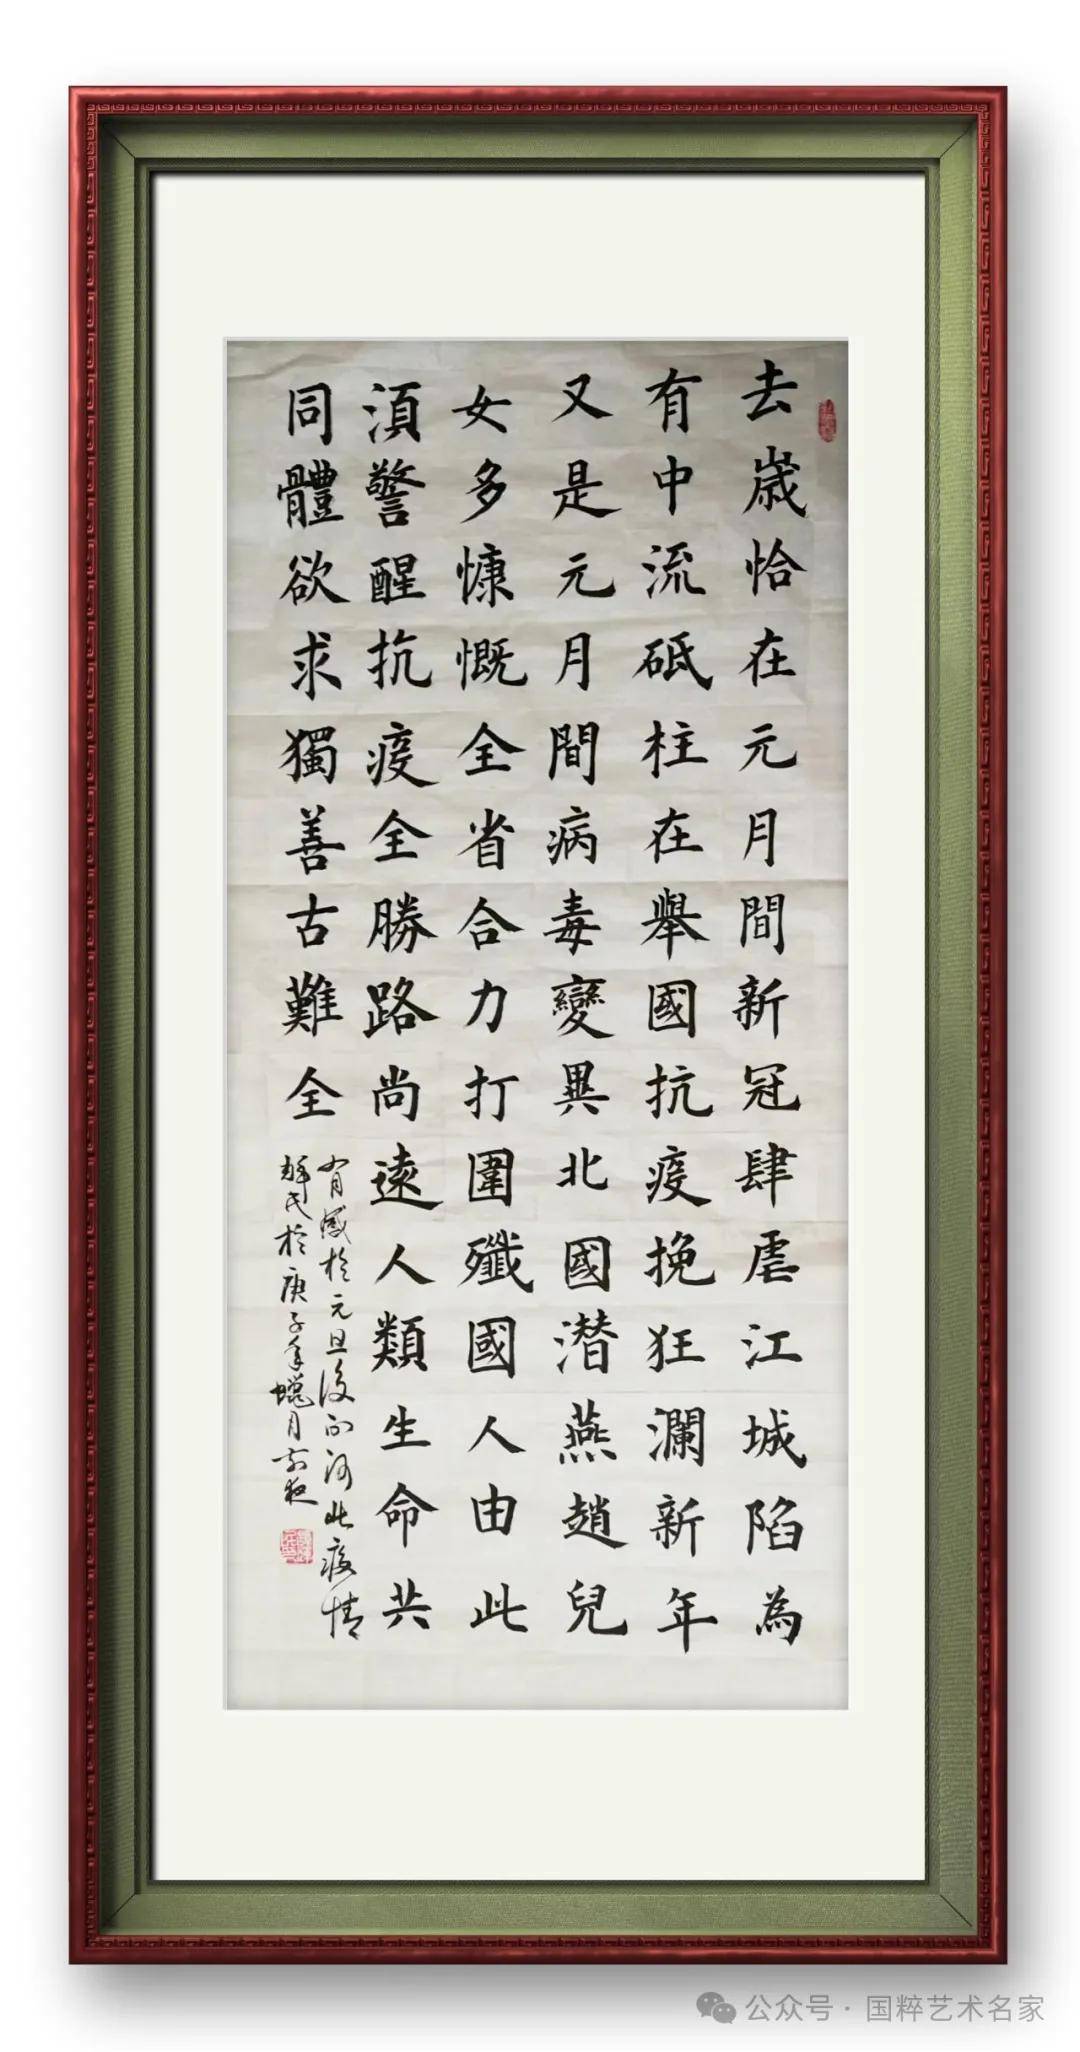 去歲恰在元月間新冠肆虐江城陷為
有中流砥柱在舉國抗疫挽狂瀾新年
又是元月間病毒變異北國潜燕趙兒
女多慷慨全省合力打圍殲國人由此
須警醒抗疫全勝路尚遠人類生命共
同體欲求獨善古難全
有感於元旦後河此疫情
民於庚子年蠟月前夜
公众号·国粹艺术名家